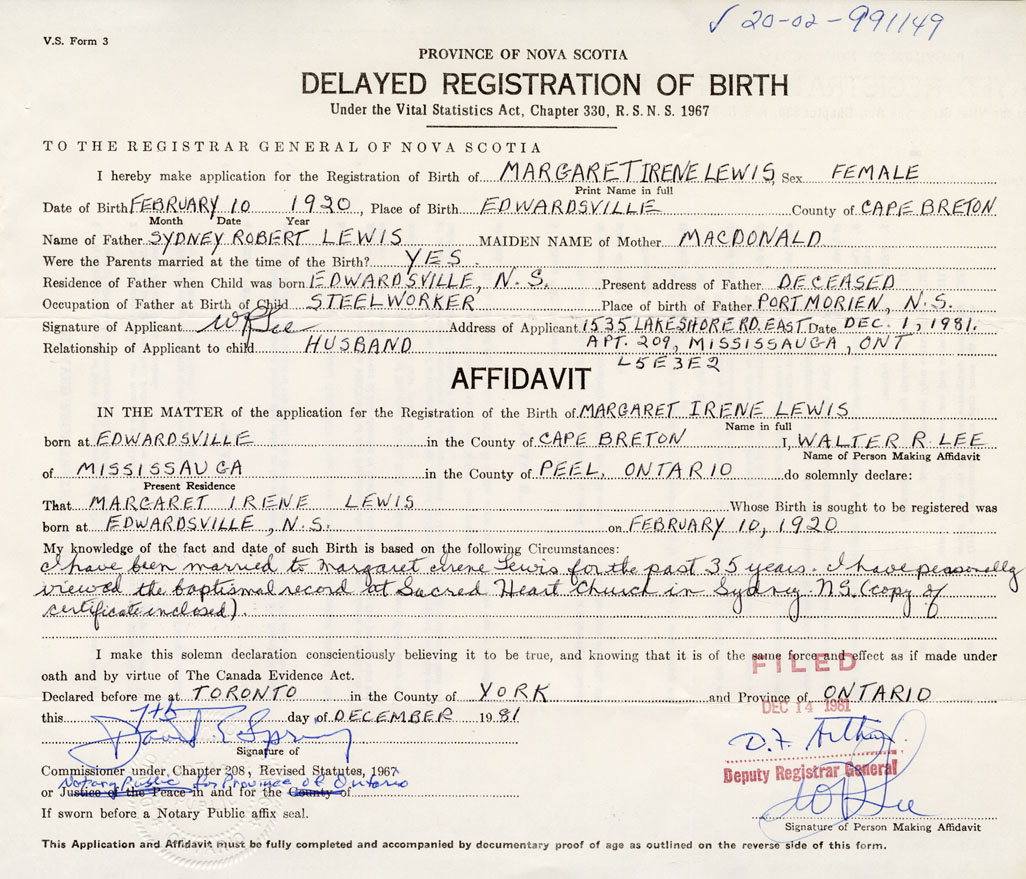 ✓ 20-02-991149
V.S. Form 3
PROVINCE OF NOVA SCOTIA
DELAYED REGISTRATION OF BIRTH
Under the Vital Statistics Act, Chapter 330, R.S.N.S. 1967
TO THE REGISTRAR GENERAL OF NOVA SCOTIA
I hereby make application for the Registration of Birth of MARGARET IRENE LEWIS, Sex FEMALE
Print Name in full
Date of Birth FEBRUARY 10 1920, Place of Birth EDWARDSVILLE County of CAPE BRETON
Month Date Year
Name of Father SYDNEY ROBERT LEWIS MAIDEN NAME of Mother MACDONALD
Were the Parents married at the time of the Birth? YES.
Residence of Father when Child was born EDWARDSVILLE, N.S. Present address of Father DECEASED
Occupation of Father at Birth of Child STEELWORKER Place of birth of Father PORT MORIEN, N.S.
Signature of Applicant W R Lee Address of Applicant 1535 LAKESHORE RD. EAST Date DEC. 1, 1981.
Relationship of Applicant to child HUSBAND APT. 209, MISSISSAUGA, ONT
L5E3E2
AFFIDAVIT
IN THE MATTER of the application for the Registration of the Birth of MARGARET IRENE LEWIS
Name in full
born at EDWARDSVILLE in the County of CAPE BRETON I, WALTER R. LEE
Name of Person Making Affidavit
of MISSISSAUGA in the County of PEEL, ONTARIO do solemnly declare:
Present Residence
That MARGARET IRENE LEWIS Whose Birth is sought to be registered was
born at EDWARDSVILLE, N.S. on FEBRUARY 10, 1920
My knowledge of the fact and date of such Birth is based on the following Circumstances:
I have been married to Margaret Irene Lewis for the past 35 years. I have personally
viewed the baptismal record at Sacred Heart Church in Sydney N.S. (copy of
certificate inclosed).
I make this solemn declaration conscientiously believing it to be true, and knowing that it is of the same force and effect as if made under
oath and by virtue of The Canada Evidence Act.
FILED
Declared before me at TORONTO in the County of YORK and Province of ONTARIO
DEC 14 1981
this 7th day of DECEMBER 1981
David E
Signature of
D.F.
Commissioner under Chapter 208, Revised Statutes, 1967
Deputy Registrar General
Notary Public for Province of Ontario
or Justice of the Peace in and for the County of
W R Lee
If sworn before a Notary Public affix seal.
Signature of Person Making Affidavit
This Application and Affidavit must be fully completed and accompanied by documentary proof of age as outlined on the reverse side of this form.